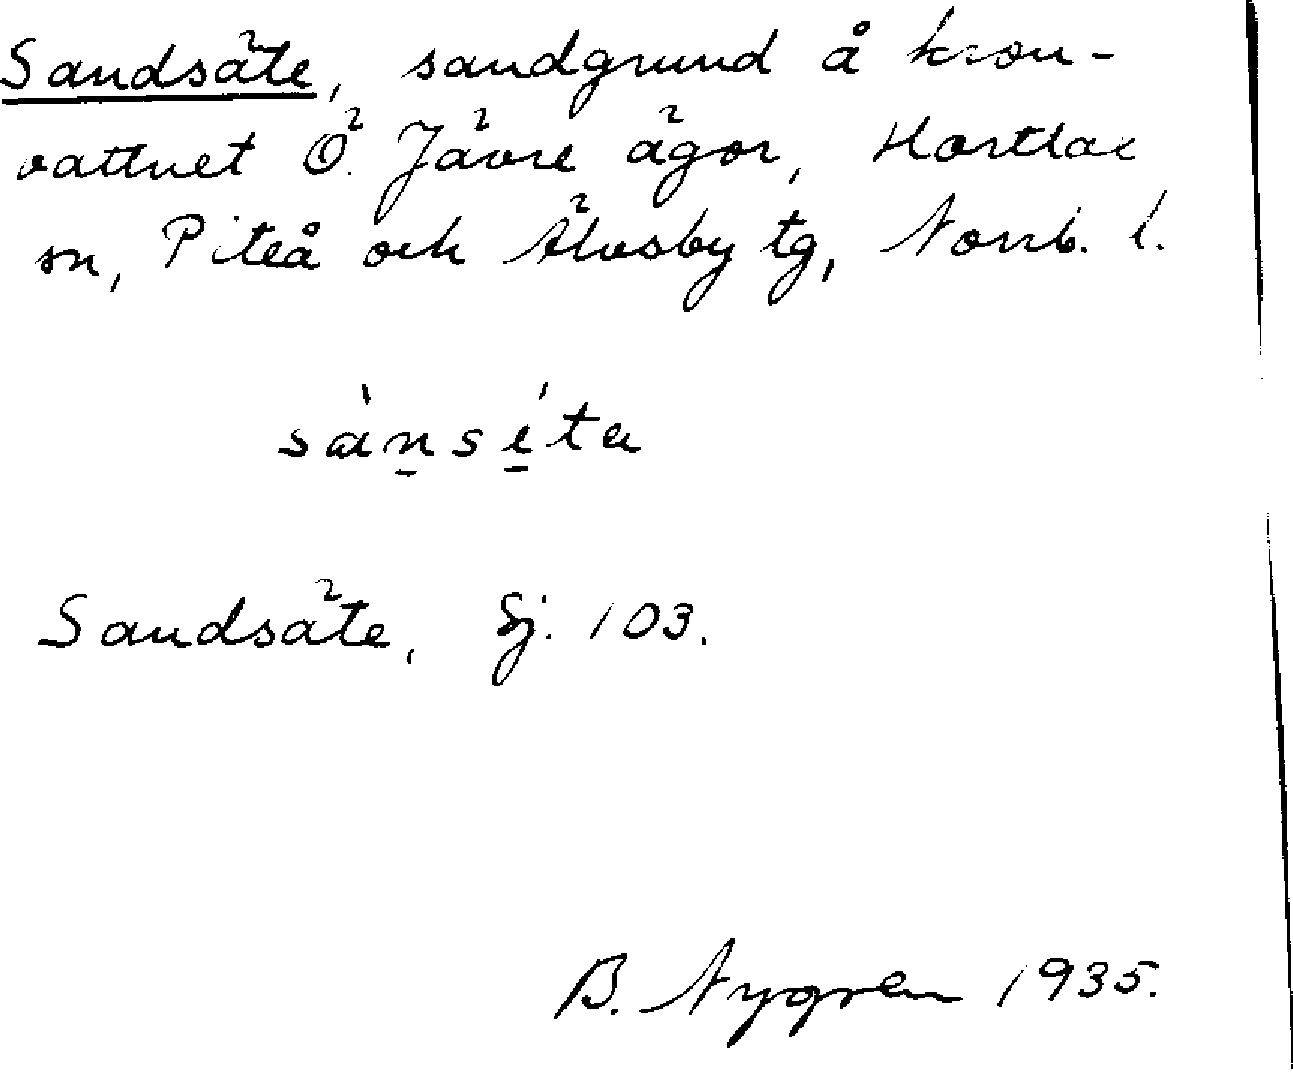 Sandsäte, sandgrund å kron-
vattnet Ö. Jävre ägor, Hortlax
sn, Piteå och Älvsby tg, Norrb. l.
sàn̠sé̠ta
Sandsäte, Sj. 103.
B. Nygren 1935.